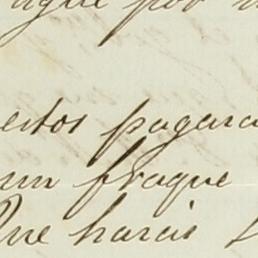 por
estos pagara
un fraque
Que harais